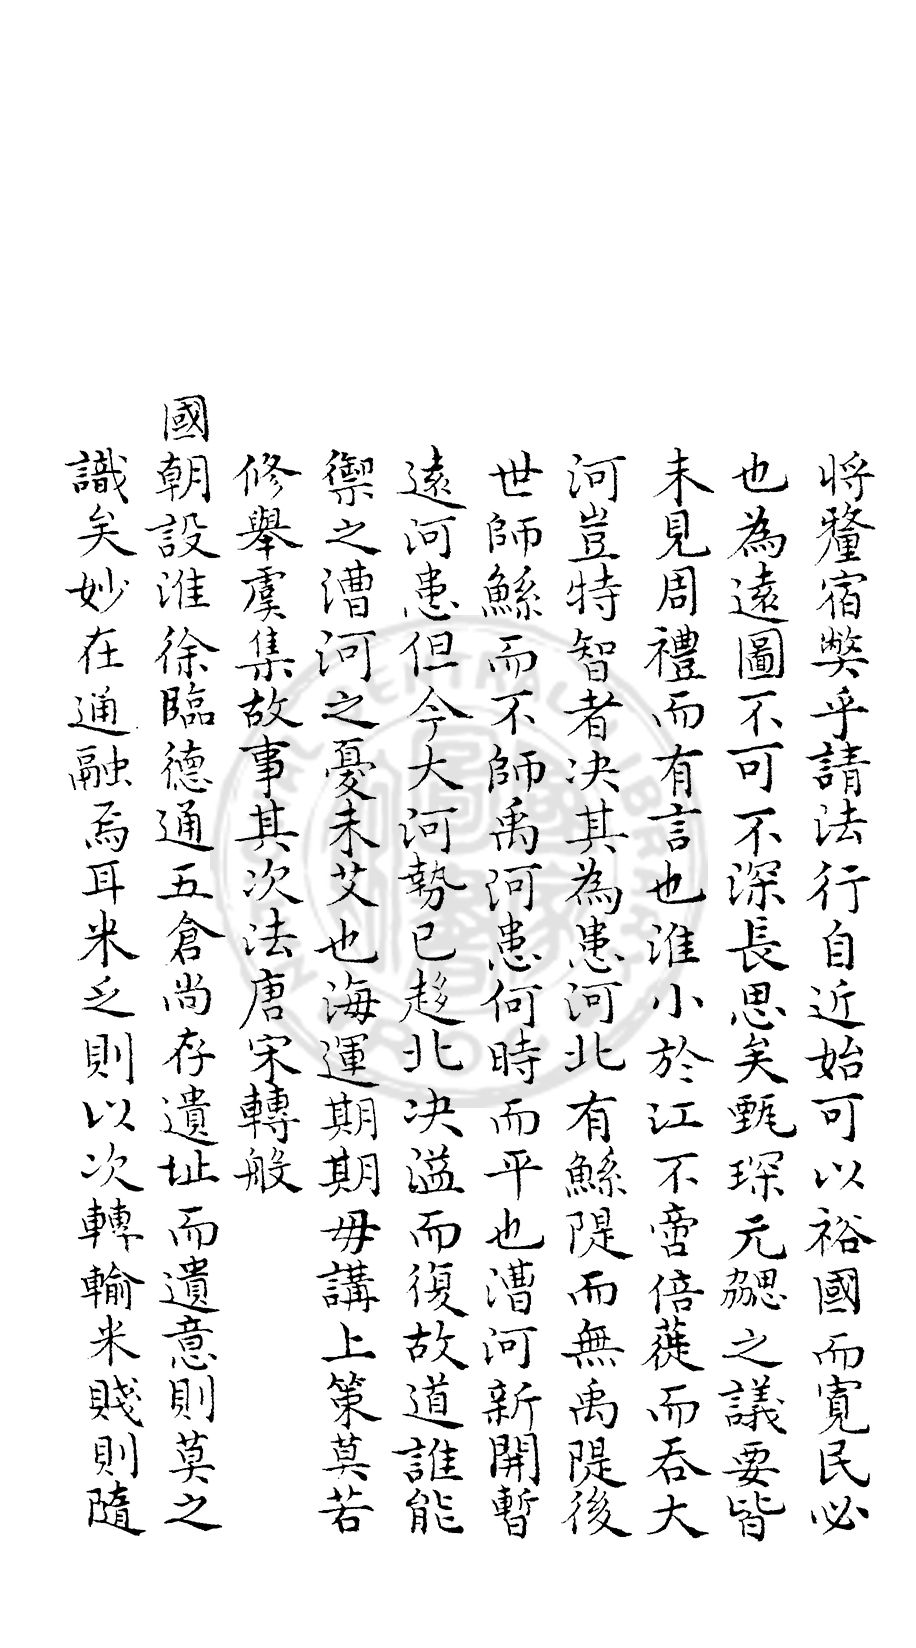 將釐宿弊乎請法行自近始可以裕國而寬民必
也為遠圖不可不深長思矣甄琛元勰之議要皆
未見周禮而有言也淮小於江不啻倍蓰而吞大
河豈特智者决其為患河北有鯀隄而無禹隄後
世師鯀而不師禹河患何時而平也漕河新開暫
遠河患但今大河勢已趍北决溢而復故道誰能
禦之漕河之憂未艾也海運期期毋講上策莫若
修舉虞集故事其次法唐宋轉般
國朝設淮徐臨德通五倉尚存遺址而遺意則莫之
識矣妙在通融焉耳米乏則以次轉輸米賤則隨